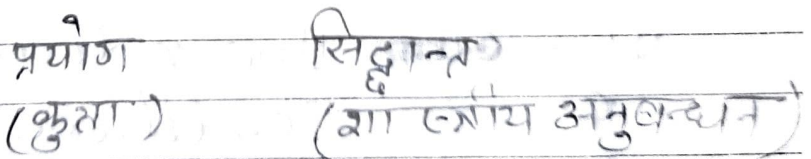 प्रयोग सिद्धान्त
(कुत्ता) (शास्त्रीय अनुबन्धन)